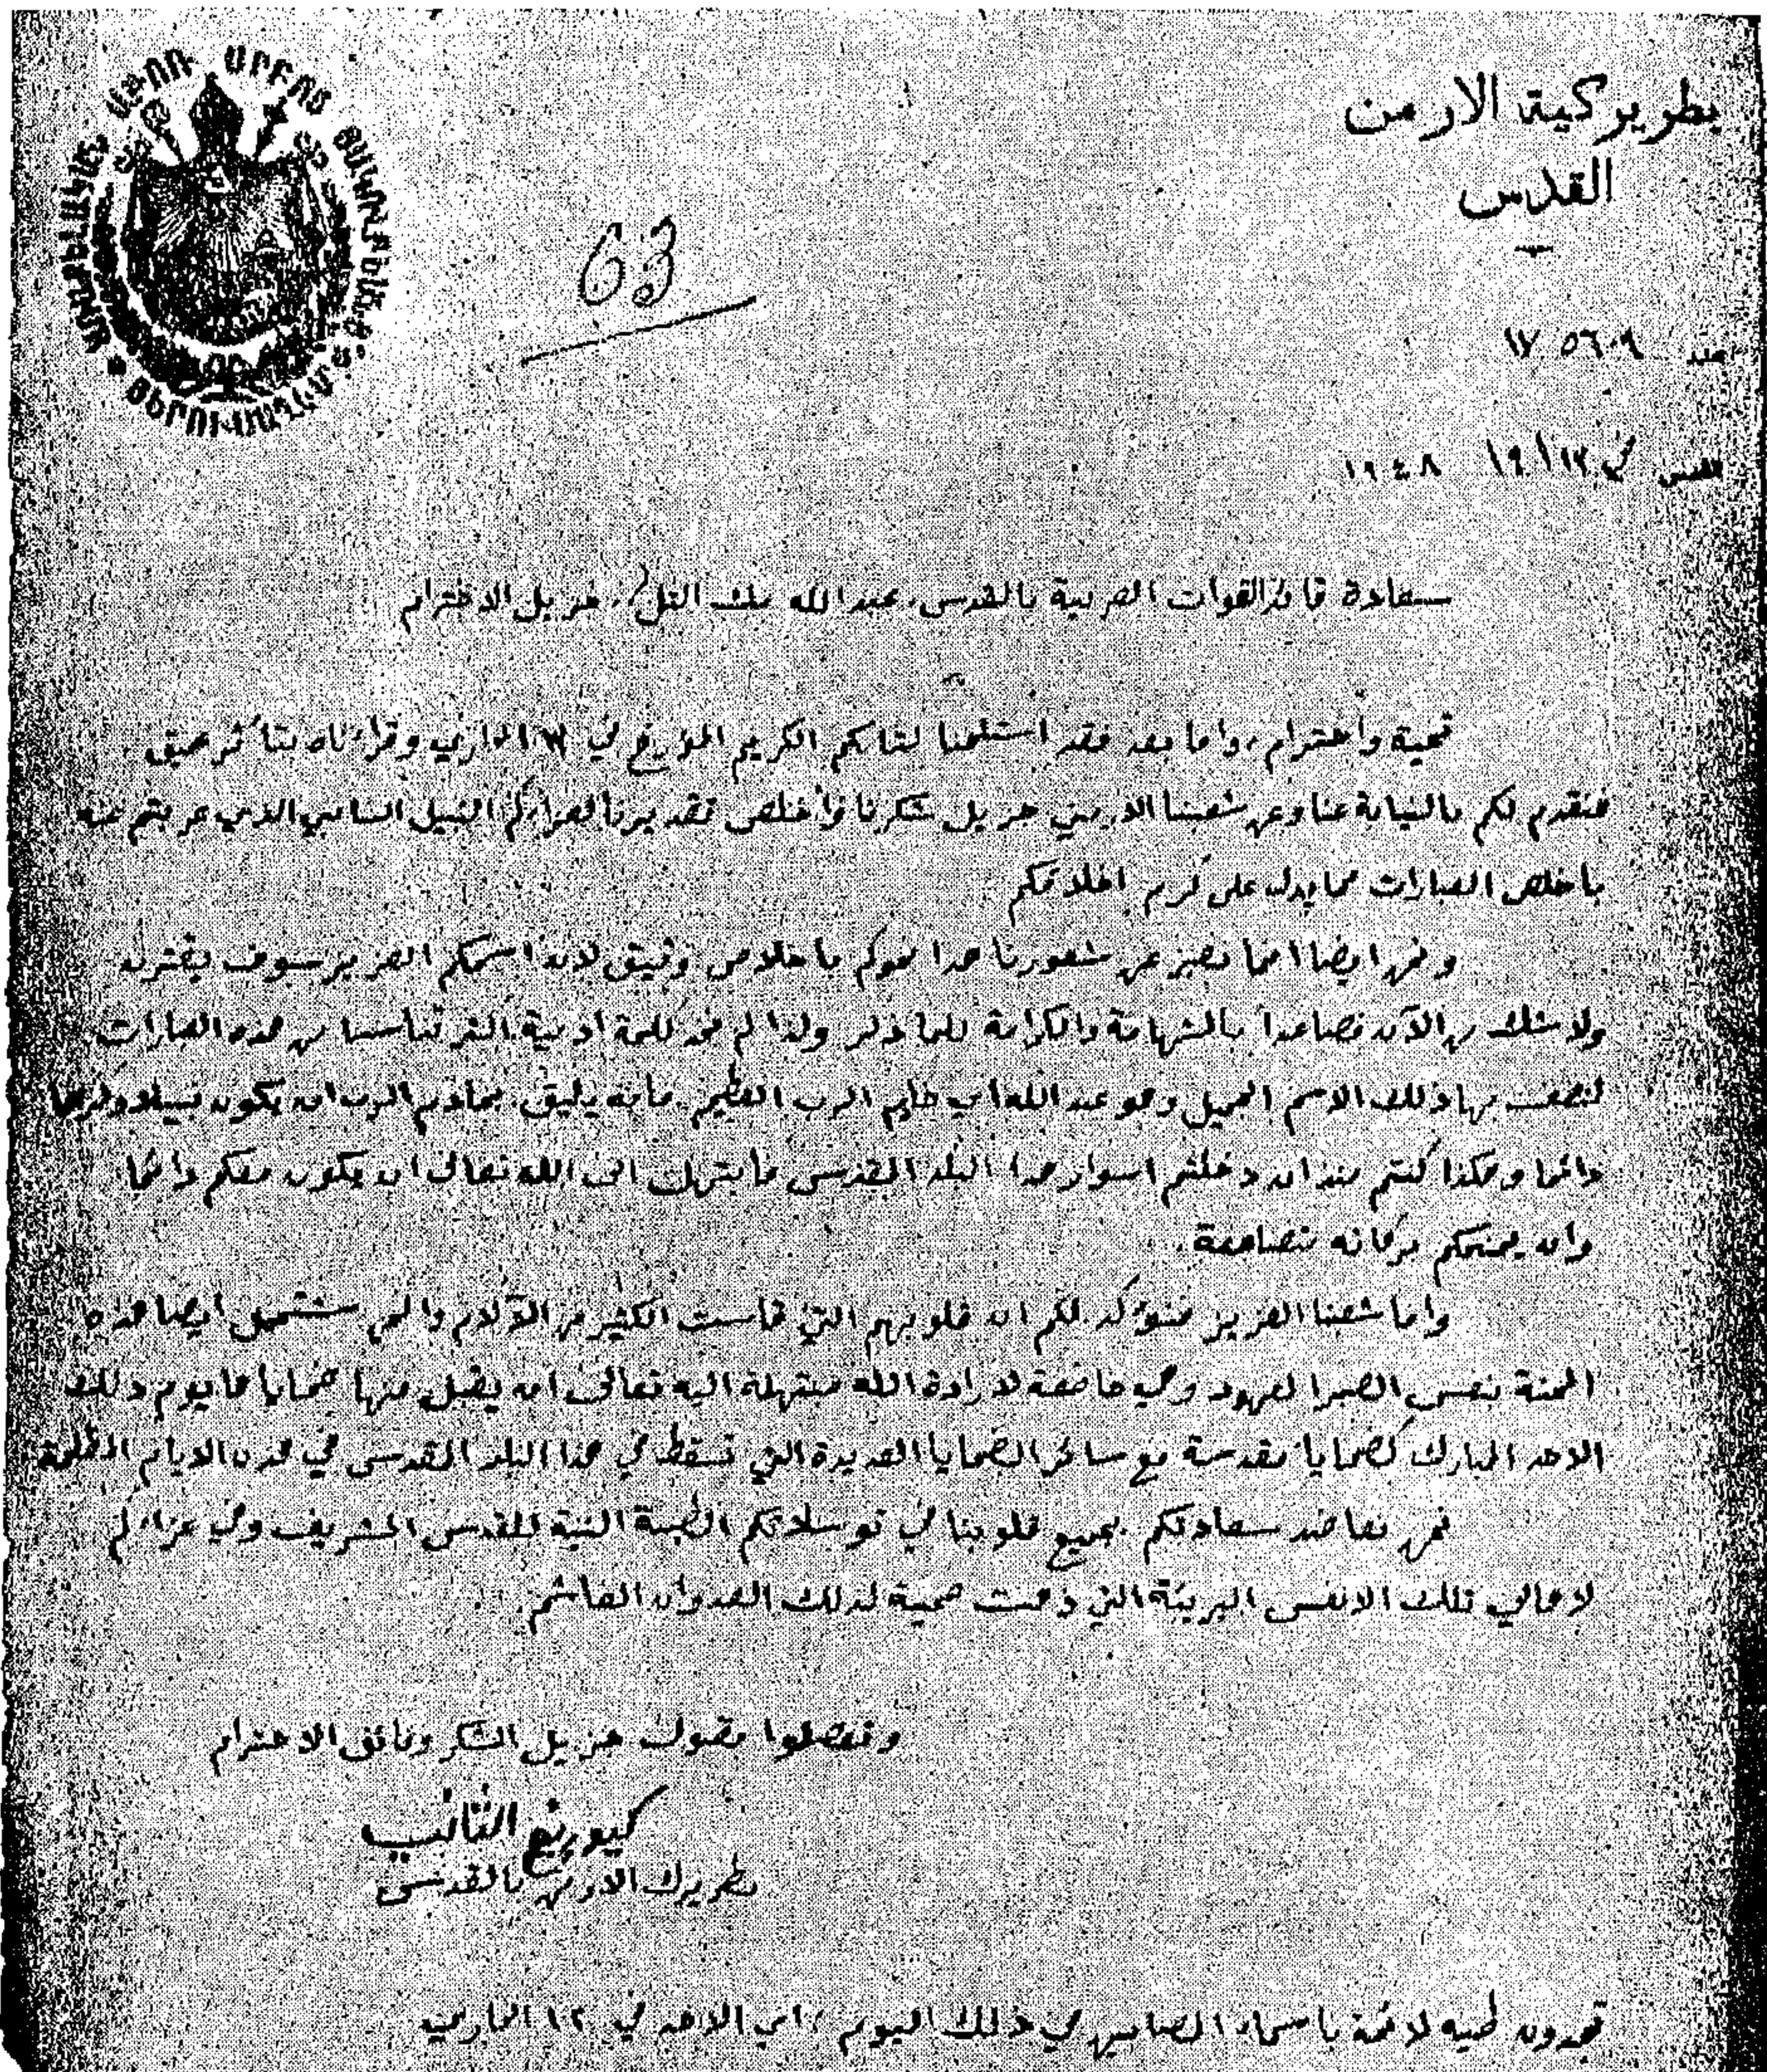 بطريركية الارمن
القدس
ԱՌԱՔԵԼԱԿԱՆ ԱԹՈՌ ՍՐԲՈՑ ՅԱԿՈԲԵԱՆՑ
ՅԵՐՈՒՍԱՂԷՄ
63
عدد ١٧ ٥٦٠٩
القدس في ١٩٤٨
سعادة قائد القوات العربية بالقدس، عبدالله بك التل، جزيل الاحترام
تحية واحترام، واما بعد فقد استلمنا كتابكم الكريم المؤرخ في الجاري وقرأناه بتأثر عميق
فنقدم لكم بالنيابة عنا وعن شعبنا الارمني جزيل شكرنا وأخلص تقديرنا لعزائكم النبيل السامي الذي عربتم عنه
باخلص العبارات مما يدل على كرم اخلاقكم
ونحن ايضا انما نعبر عن شعورنا هذا نحوكم باخلاص وثيق لان اسمكم العزيز سوف يقترن
ولا شك من الآن فصاعدا بالشهامة والكرامة كلما ذكر ولذا لم نجد كلمة ادبية اكثر تناسبا من هذه العبارات
لنصف بها ذلك الاسم الجميل وهو عبد الله اي خادم الرب العظيم. فانه يليق بخادم الرب ان يكون نبيلا وكريما
دائما وهكذا كنتم منذ ان دخلتم اسوار هذا البلد المقدس فابتهل الى الله تعالى ان يكون معكم دائما
وان يمنحكم بركاته متضاعفة.
واما شعبنا العزيز فنؤكد لكم ان قلوبهم التي قاست الكثير من الآلام والمحن ستتحمل ايضا هذه
المحنة بنفس الصبر المعهود وهي خاضعة لارادة الله مبتهلة اليه تعالى ان يقبل منها ضحايا يوم ذلك
الاحد المبارك كضحايا مقدسة مع سائر الضحايا العديدة التي تسقط في هذا البلد المقدس في هذه الايام المظلمة
نحن نعاضد سعادتكم بجميع قلوبنا في توسلاتكم الطيبة النية للقدس الشريف وفي عزائكم
لاهالي تلك الانفس البريئة التي ذهبت ضحية لذلك العدوان الغاشم.
وتفضلوا بقبول جزيل الشكر وفائق الاحترام
كيوريغ الثاني
بطريرك الارمن بالقدس
تجدون طيه لائحة باسماء المصابين في ذلك اليوم / اي الاحد في ١٢ الجاري